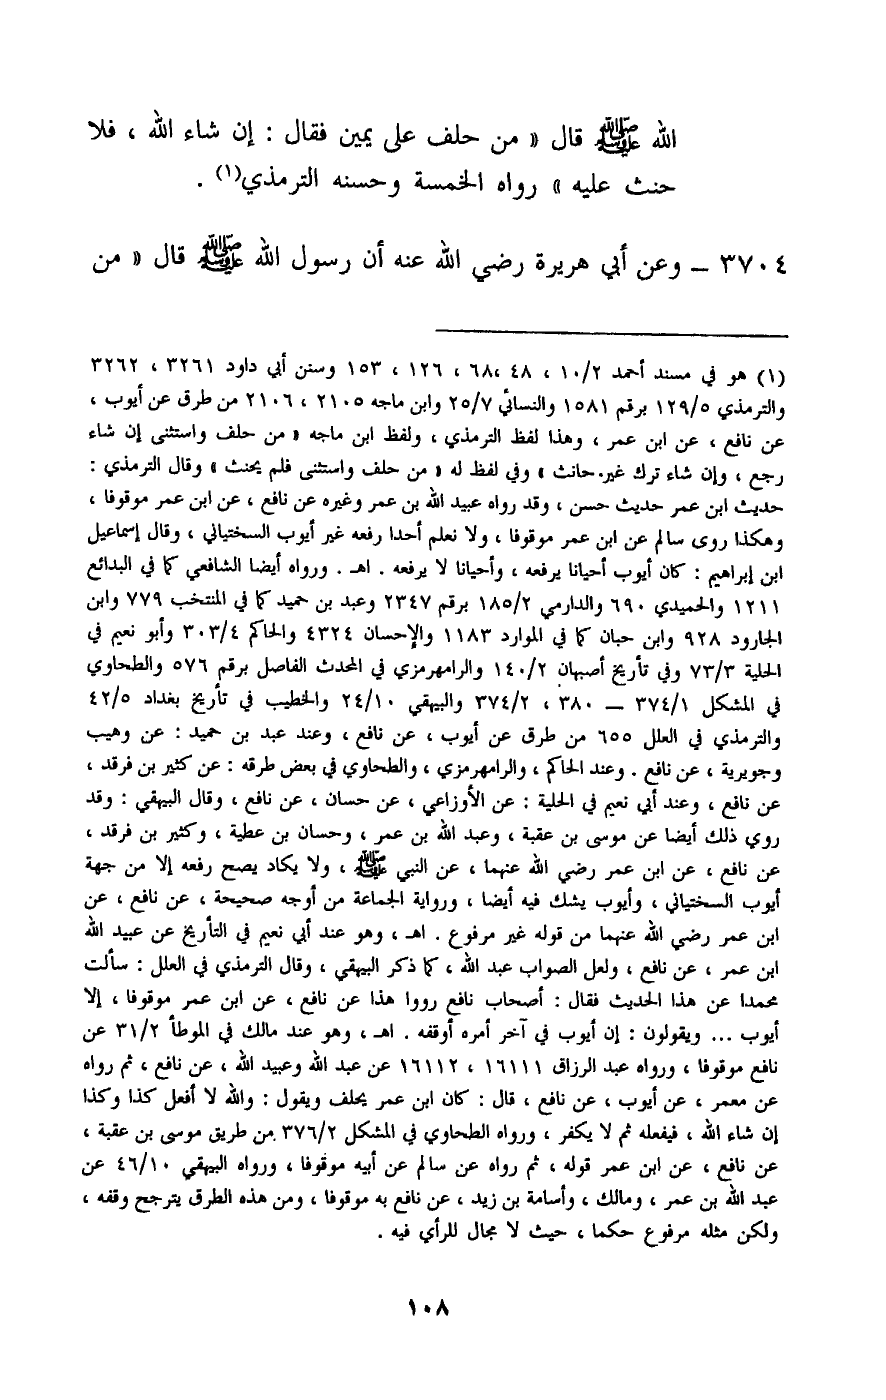 الله ﷺ قال « من حلف على يمين فقال : إن شاء الله ، فلا
حنث عليه » رواه الخمسة وحسنه الترمذي(١) .
٣٧٠٤ – وعن أبي هريرة رضي الله عنه أن رسول الله ﷺ قال « من
(١) هو في مسند أحمد ١٠/٢ ، ٤٨ ،٦٨ ، ١٢٦ ، ١٥٣ وسنن أبي داود ٣٢٦١ ، ٣٢٦٢
والترمذي ١٢٩/٥ برقم ١٥٨١ والنسائي ٢٥/٧ وابن ماجه ٢١٠٥ ، ٢١٠٦ من طرق عن أيوب ،
عن نافع ، عن ابن عمر ، وهذا لفظ الترمذي ، ولفظ ابن ماجه « من حلف واستثنى إن شاء
رجع ، وإن شاء ترك غير حانث » وفي لفظ له « من حلف واستثنى فلم يحنث » وقال الترمذي :
حديث ابن عمر حديث حسن ، وقد رواه عبيد الله بن عمر وغيره عن نافع ، عن ابن عمر موقوفا ،
وهكذا روى سالم عن ابن عمر موقوفا ، ولا نعلم أحدا رفعه غير أيوب السختياني ، وقال إسماعيل
ابن إبراهيم : كان أيوب أحيانا يرفعه ، وأحيانا لا يرفعه . اهـ . ورواه أيضا الشافعي كما في البدائع
١٢١١ والحميدي ٦٩٠ والدارمي ١٨٥/٢ برقم ٢٣٤٧ وعبد بن حميد كما في المنتخب ٧٧٩ وابن
الجارود ٩٢٨ وابن حبان كما في الموارد ١١٨٣ والإحسان ٤٣٢٤ والحاكم ٣٠٣/٤ وأبو نعيم في
الحلية ٧٣/٣ وفي تأريخ أصبهان ١٤٠/٢ والرامهرمزي في المحدث الفاصل برقم ٥٧٦ والطحاوي
في المشكل ٣٧٤/١ – ٣٨٠ ، ٣٧٤/٢ والبيهقي ٢٤/١٠ والخطيب في تأريخ بغداد ٤٢/٥
والترمذي في العلل ٦٥٥ من طرق عن أيوب ، عن نافع ، وعند عبد بن حميد : عن وهيب
وجويرية ، عن نافع . وعند الحاكم ، والرامهرمزي ، والطحاوي في بعض طرقه : عن كثير بن فرقد ،
عن نافع ، وعند أبي نعيم في الحلية : عن الأوزاعي ، عن حسان ، عن نافع ، وقال البيهقي : وقد
روي ذلك أيضا عن موسى بن عقبة ، وعبد الله بن عمر ، وحسان بن عطية ، وكثير بن فرقد ،
عن نافع ، عن ابن عمر رضي الله عنهما ، عن النبي ﷺ ، ولا يكاد يصح رفعه إلا من جهة
أيوب السختياني ، وأيوب يشك فيه أيضا ، ورواية الجماعة من أوجه صحيحة ، عن نافع ، عن
ابن عمر رضي الله عنهما من قوله غير مرفوع . اهـ ، وهو عند أبي نعيم في التأريخ عن عبيد الله
ابن عمر ، عن نافع ، ولعل الصواب عبد الله ، كما ذكر البيهقي ، وقال الترمذي في العلل : سألت
محمدا عن هذا الحديث فقال : أصحاب نافع رووا هذا عن نافع ، عن ابن عمر موقوفا ، إلا
أيوب ... ويقولون : إن أيوب في آخر أمره أوقفه . اهـ ، وهو عند مالك في الموطأ ٣١/٢ عن
نافع موقوفا ، ورواه عبد الرزاق ١٦١١١ ، ١٦١١٢ عن عبد الله وعبيد الله ، عن نافع ، ثم رواه
عن معمر ، عن أيوب ، عن نافع ، قال : كان ابن عمر يحلف ويقول : والله لا أفعل كذا وكذا
إن شاء الله ، فيفعله ثم لا يكفر ، ورواه الطحاوي في المشكل ٣٧٦/٢ من طريق موسى بن عقبة ،
عن نافع ، عن ابن عمر قوله ، ثم رواه عن سالم عن أبيه موقوفا ، ورواه البيهقي ٤٦/١٠ عن
عبد الله بن عمر ، ومالك ، وأسامة بن زيد ، عن نافع به موقوفا ، ومن هذه الطرق يترجح وقفه ،
ولكن مثله مرفوع حكما ، حيث لا مجال للرأي فيه .
١٠٨